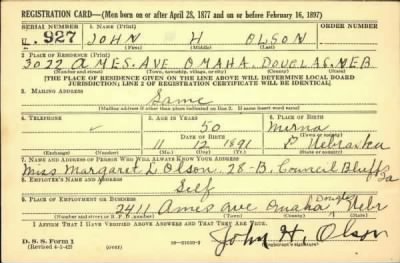 REGISTRATION CARD—(Men born on or after April 28, 1877 and on or before February 16, 1897)
SERIAL NUMBER 1. NAME (Print) ORDER NUMBER
U. 927 JOHN H OLSON
(First) (Middle) (Last)
2. PLACE OF RESIDENCE (Print)
3022 AMES. AVE OMAHA. DOUGLAS. NEB
(Number and street) (Town, township, village, or city) (County) (State)
[THE PLACE OF RESIDENCE GIVEN ON THE LINE ABOVE WILL DETERMINE LOCAL BOARD
JURISDICTION; LINE 2 OF REGISTRATION CERTIFICATE WILL BE IDENTICAL]
3. MAILING ADDRESS
Same
[Mailing address if other than place indicated on line 2. If same insert word same]
4. TELEPHONE 5. AGE IN YEARS 6. PLACE OF BIRTH
50 Mirna
DATE OF BIRTH (Town or county)
11 12 1891 Nebraska
(Exchange) (Number) (Mo.) (Day) (Yr.) (State or country)
7. NAME AND ADDRESS OF PERSON WHO WILL ALWAYS KNOW YOUR ADDRESS
Miss Margaret L Olson. 28-B. Council Bluffs Ia
8. EMPLOYER'S NAME AND ADDRESS
Self
9. PLACE OF EMPLOYMENT OR BUSINESS
2411 Ames ave Omaha Douglas Nebr
(Number and street or R. F. D. number) (Town) (County) (State)
I AFFIRM THAT I HAVE VERIFIED ABOVE ANSWERS AND THAT THEY ARE TRUE.
D. S. S. Form 1
(Revised 4-1-42) (over) John H. Olson
(Registrant's signature)